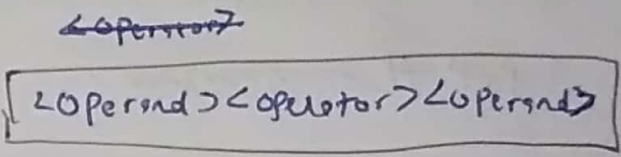 <operator>
<operand><operator><operand>